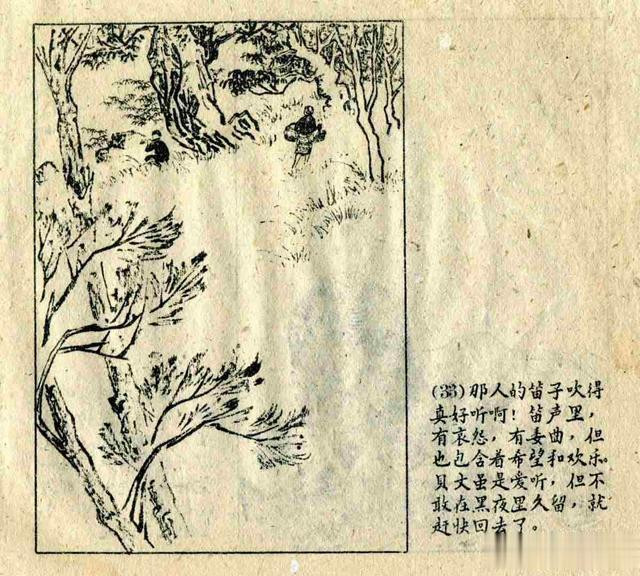 (33)那人的笛子吹得
真好听啊！笛声里，
有哀怨，有委曲，但
也包含着希望和欢乐。
贝文虽是爱听，但不
敢在黑夜里久留，就
赶快回去了。